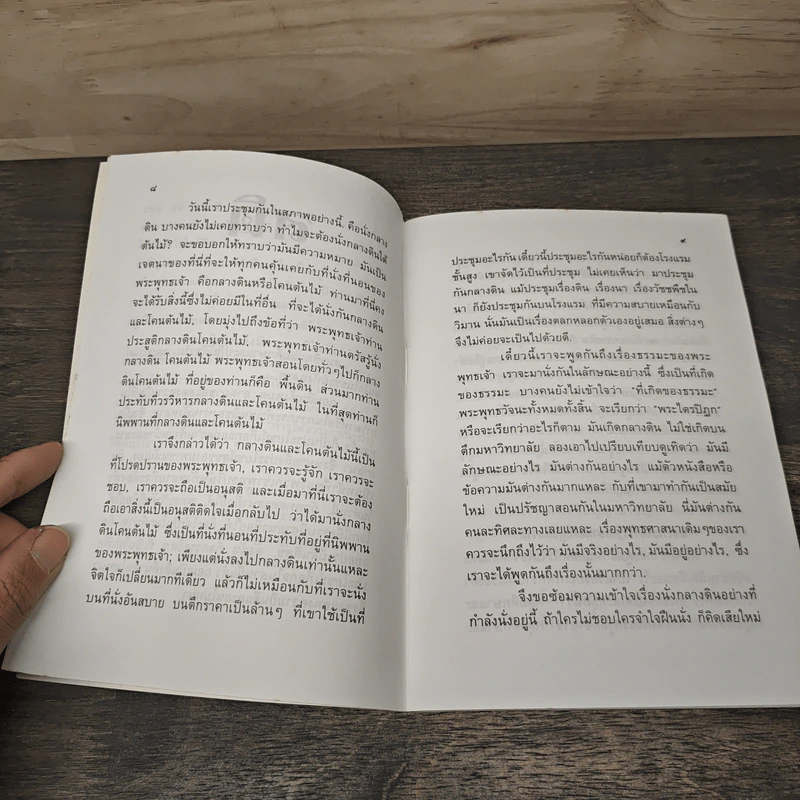 ๘
วันนี้เราประชุมกันในสภาพอย่างนี้. คือนั่งกลาง
ดิน บางคนยังไม่เคยทราบว่า ทำไมจะต้องนั่งกลางดินใต้
ต้นไม้? จะขอบอกให้ทราบว่ามันมีความหมาย มันเป็น
เจตนาของที่นี่ที่จะให้ทุกคนคุ้นเคยกับที่นั่งที่นอนของ
พระพุทธเจ้า คือกลางดินหรือโคนต้นไม้ ท่านมาที่นี่คง
จะได้รับสิ่งนี้ซึ่งไม่ค่อยมีในที่อื่น ที่จะได้นั่งกันกลางดิน
และโคนต้นไม้. โดยมุ่งไปถึงข้อที่ว่า พระพุทธเจ้าท่าน
ประสูติกลางดินโคนต้นไม้. พระพุทธเจ้าท่านตรัสรู้นั่ง
กลางดิน โคนต้นไม้ พระพุทธเจ้าสอนโดยทั่วๆไปก็กลาง
ดินโคนต้นไม้ ที่อยู่ของท่านก็คือ พื้นดิน ส่วนมากท่าน
ประทับที่วรวิหารกลางดินและโคนต้นไม้ ในที่สุดท่านก็
นิพพานที่กลางดินและโคนต้นไม้
เราจึงกล่าวได้ว่า กลางดินและโคนต้นไม้นี้เป็น
ที่โปรดปรานของพระพุทธเจ้า, เราควรจะรู้จัก เราควรจะ
ชอบ, เราควรจะถือเป็นอนุสติ และเมื่อมาที่นี่เราจะต้อง
ถือเอาสิ่งนี้เป็นอนุสติติดใจเมื่อกลับไป ว่าได้มานั่งกลาง
ดินโคนต้นไม้ ซึ่งเป็นที่นั่งที่นอนที่ประทับที่อยู่ที่นิพพาน
ของพระพุทธเจ้า; เพียงแต่นั่งลงไปกลางดินเท่านั้นแหละ
จิตใจก็เปลี่ยนมากทีเดียว แล้วก็ไม่เหมือนกับที่เราจะนั่ง
บนที่นั่งอันสบาย บนตึกราคาเป็นล้านๆ ที่เขาใช้เป็นที่
๙
ประชุมอะไรกัน เดี๋ยวนี้ประชุมอะไรกันหน่อยก็ต้องโรงแรม
ชั้นสูง เขาจัดไว้เป็นที่ประชุม ไม่เคยเห็นว่า มาประชุม
กันกลางดิน แม้ประชุมเรื่องดิน เรื่องนา เรื่องวัชชพืชใน
นา ก็ยังประชุมกันบนโรงแรม ที่มีความสบายเหมือนกับ
วิมาน นั่นมันเป็นเรื่องตลกหลอกตัวเองอยู่เสมอ สิ่งต่างๆ
จึงไม่ค่อยจะเป็นไปด้วยดี.
เดี๋ยวนี้เราจะพูดกันถึงเรื่องธรรมะของพระ
พุทธเจ้า เราจะมานั่งกันในลักษณะอย่างนี้ ซึ่งเป็นที่เกิด
ของธรรมะ บางคนยังไม่เข้าใจว่า "ที่เกิดของธรรมะ"
พระพุทธวัจนะทั้งหมดทั้งสิ้น จะเรียกว่า "พระไตรปิฎก"
หรือจะเรียกว่าอะไรก็ตาม มันเกิดกลางดิน ไม่ใช่เกิดบน
ตึกมหาวิทยาลัย ลองเอาไปเปรียบเทียบดูเทิดว่า มันมี
ลักษณะอย่างไร มันต่างกันอย่างไร แม้ตัวหนังสือหรือ
ข้อความมันต่างกันมากแหละ กับที่เขามาทำกันเป็นสมัย
ใหม่ เป็นปรัชญาสอนกันในมหาวิทยาลัย นี่มันต่างกัน
คนละทิศละทางเลยแหละ เรื่องพุทธศาสนาเดิมๆของเรา
ควรจะนึกถึงไว้ว่า มันมีจริงอย่างไร, มันมีอยู่อย่างไร. ซึ่ง
เราจะได้พูดกันถึงเรื่องนั้นมากกว่า.
จึงขอซ้อมความเข้าใจเรื่องนั่งกลางดินอย่างที่
กำลังนั่งอยู่นี้ ถ้าใครไม่ชอบใครจำใจฝืนนั่ง ก็คิดเสียใหม่